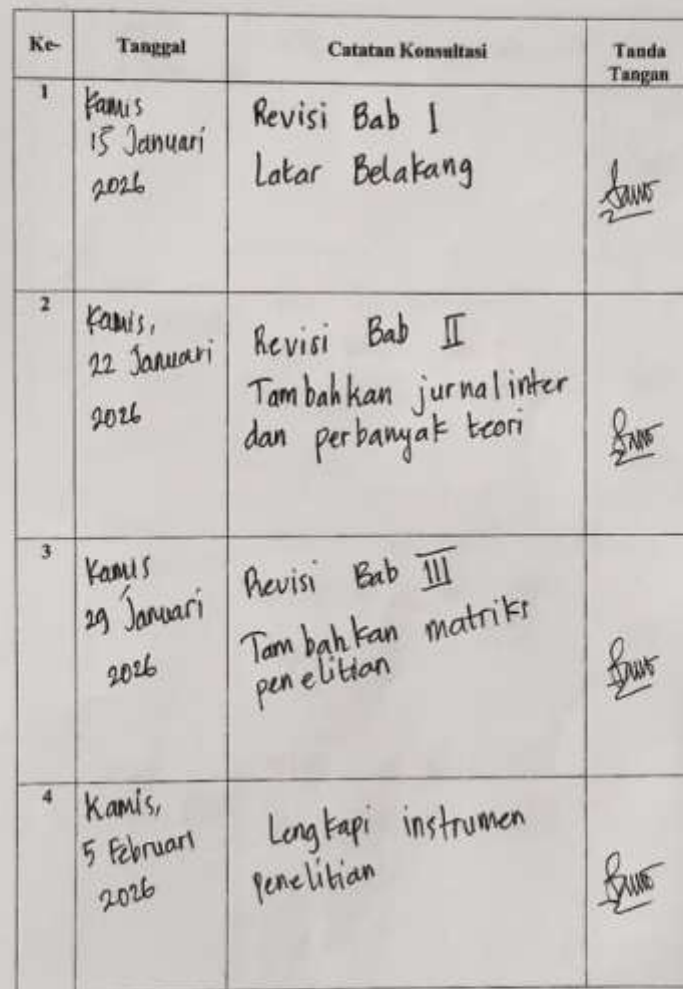 Ke- Tanggal Catatan Konsultasi Tanda
Tangan
1
Kamis
15 Januari
2026
Revisi Bab I
Latar Belakang
2
Kamis,
22 Januari
2026
Revisi Bab II
Tambahkan jurnal inter
dan perbanyak teori
3
Kamis
29 Januari
2026
Revisi Bab III
Tambahkan matriks
penelitian
4
Kamis,
5 Februari
2026
Lengkapi instrumen
penelitian